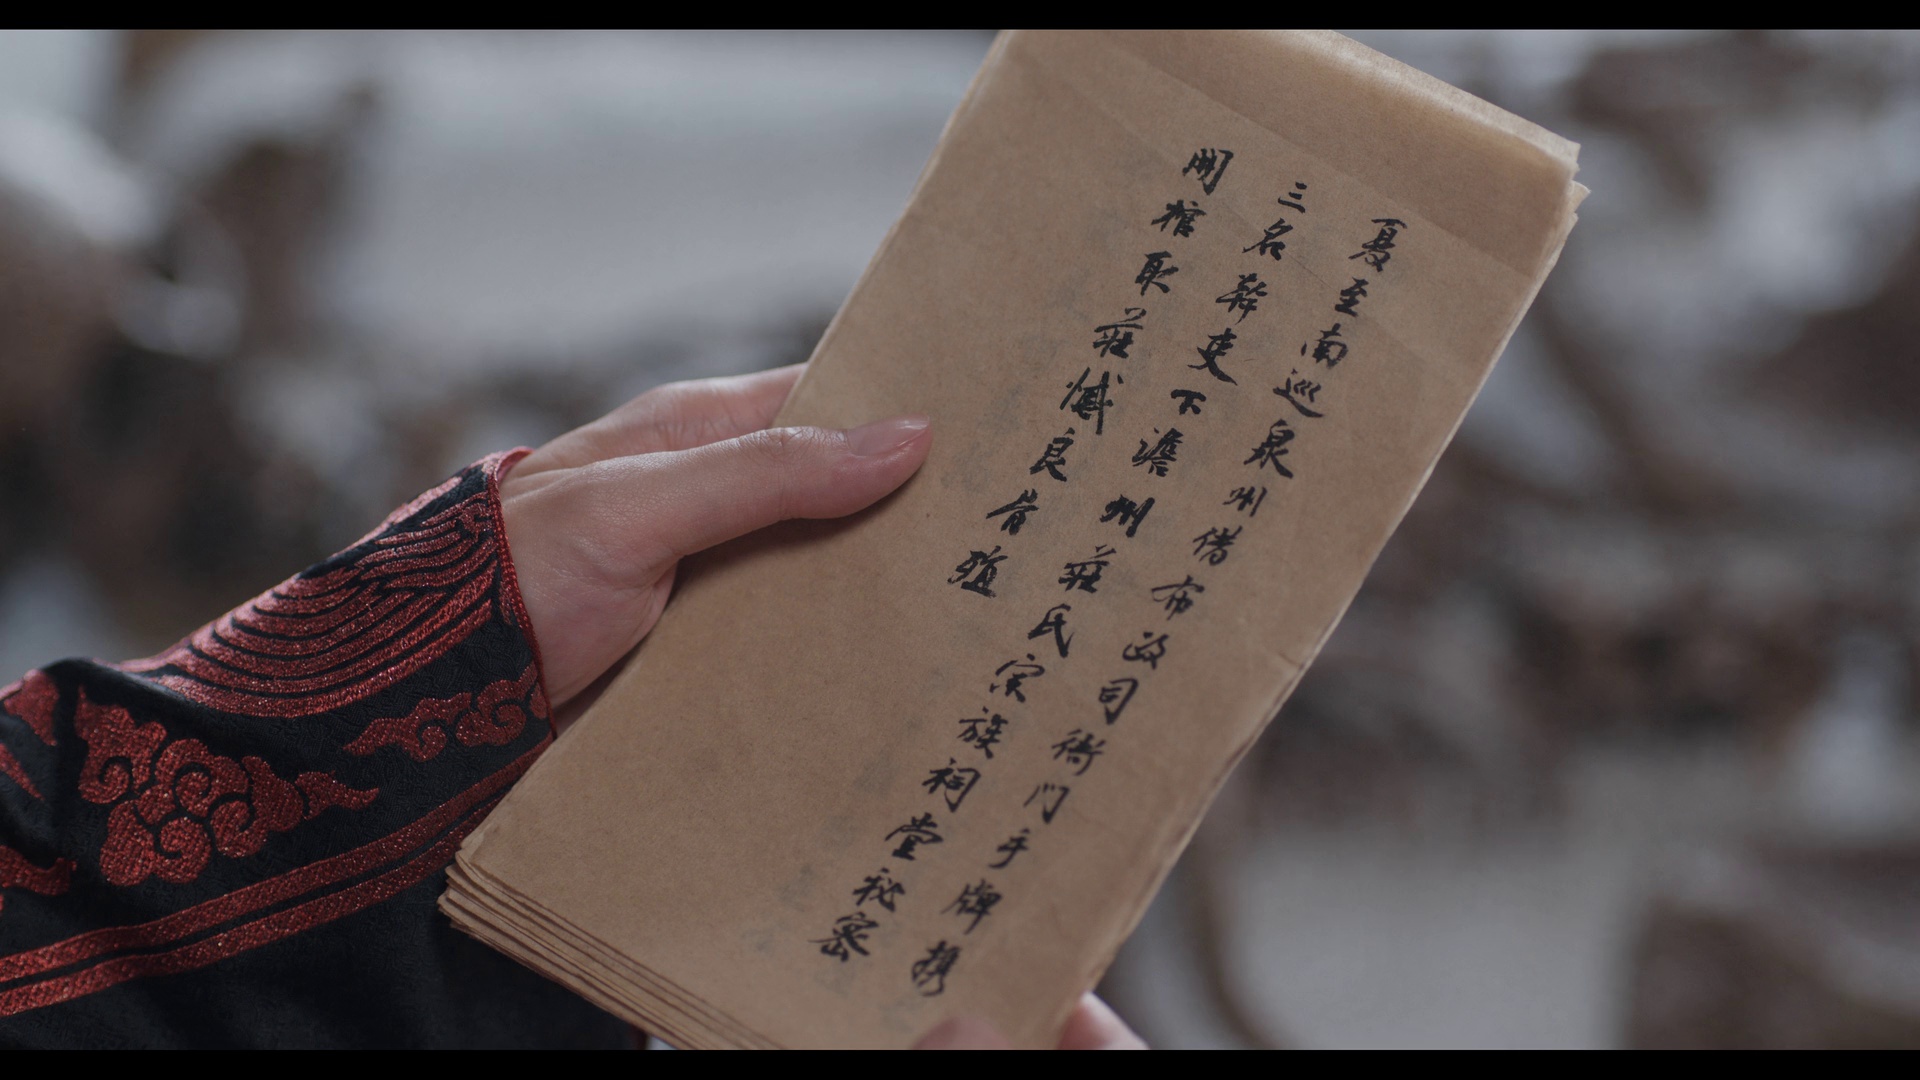 夏至南巡泉州借布政司衙門手牌携
三名幹吏下澹州莊氏宗族祠堂秘密
開棺取莊憾良骨殖